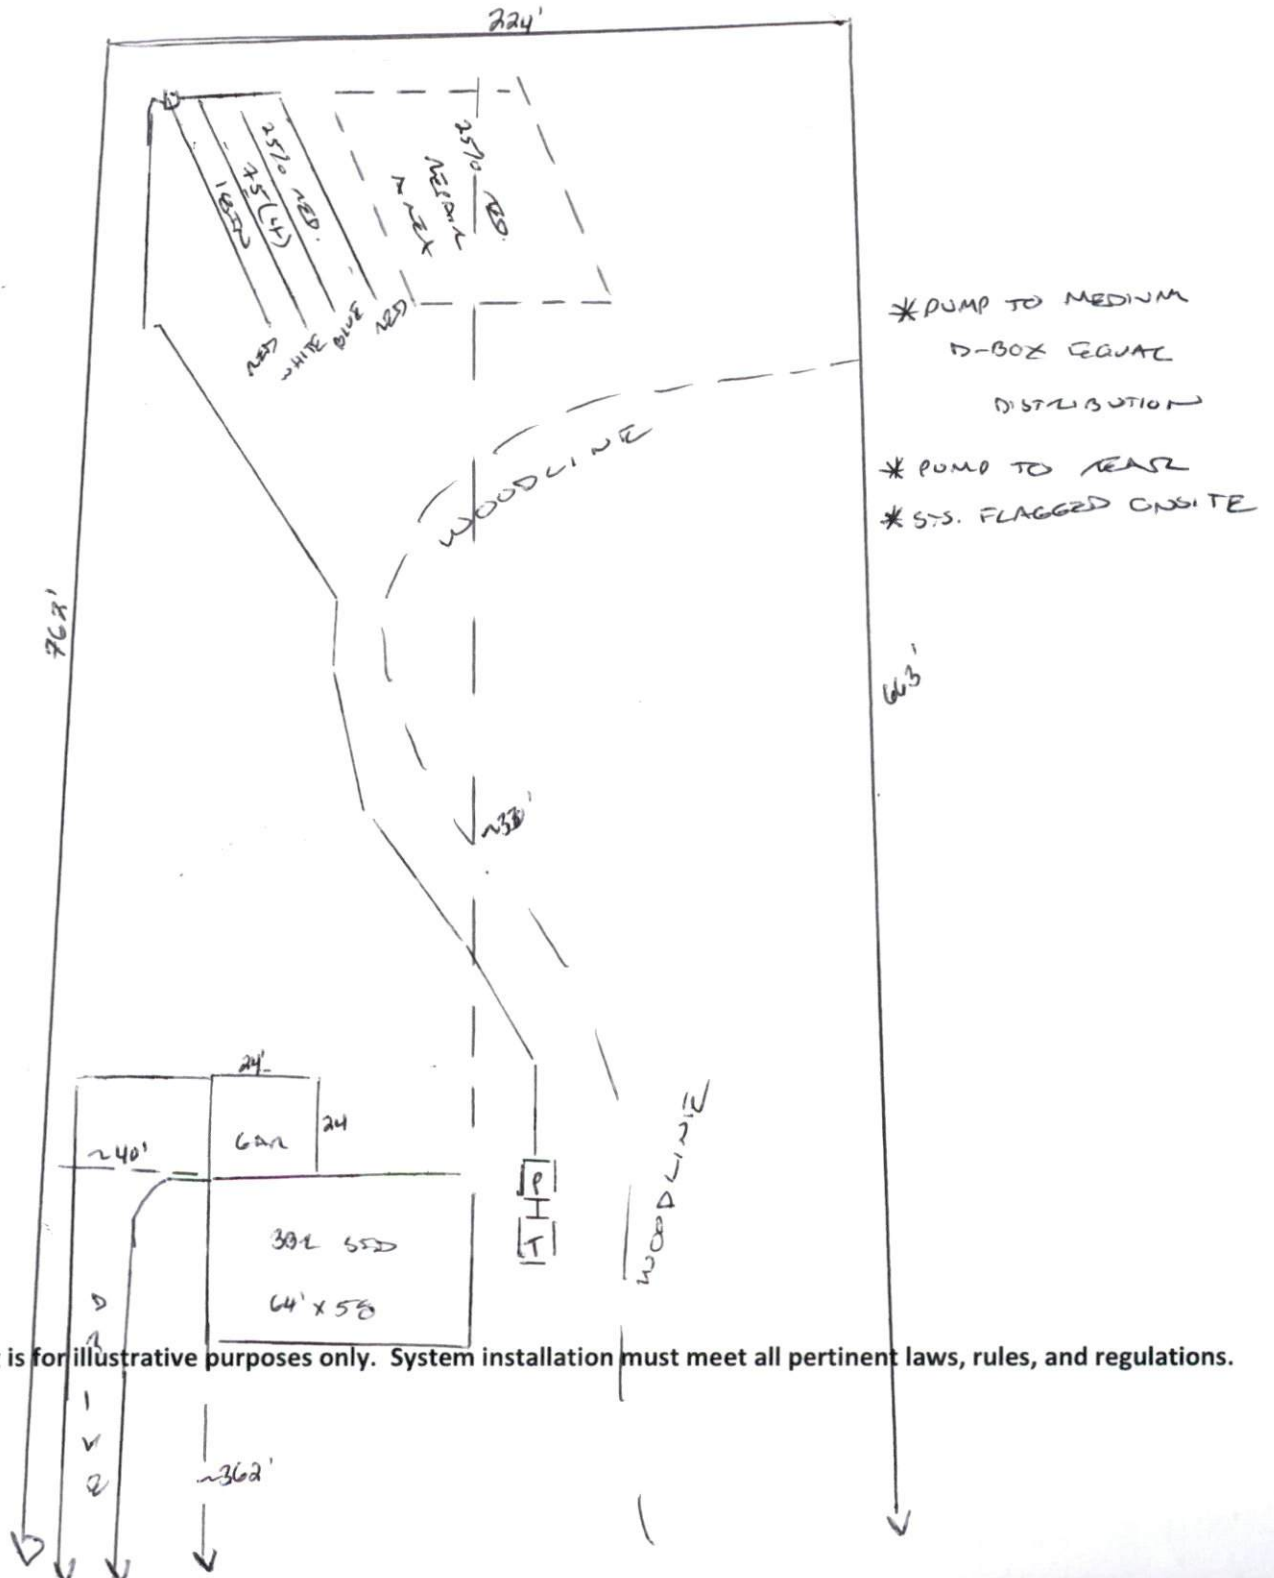 224'
25% RED.
75 (4)
18IN
25% RED.
REPAIR
RED
WHITE
BLUE
RED
* PUMP TO MEDIUM
D-BOX EQUAL
DISTRIBUTION
* PUMP TO REAR
* SYS. FLAGGED ONSITE
WOODLINE
762'
663'
24'
24
GAR
~40'
P
T
WOODLINE
3BR SFD
64' x 58
DRIVE
is for illustrative purposes only. System installation must meet all pertinent laws, rules, and regulations.
~362'